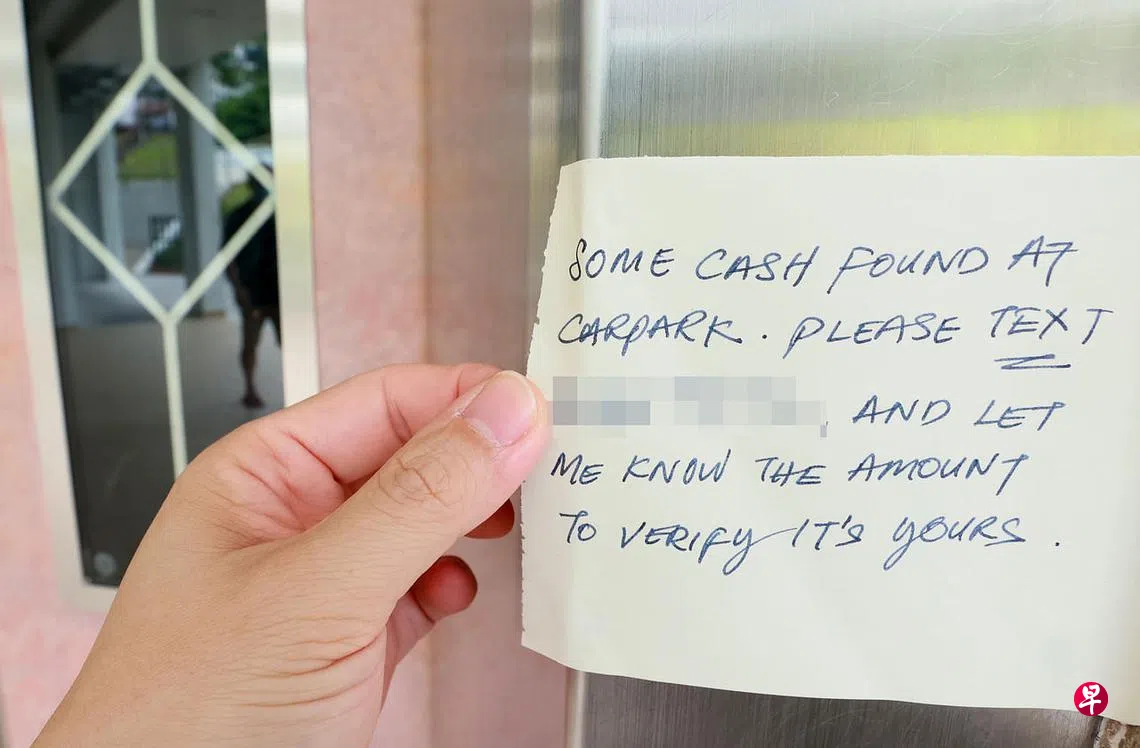 SOME CASH FOUND AT
CARPARK. PLEASE TEXT
, AND LET
ME KNOW THE AMOUNT
TO VERIFY IT'S YOURS.
早